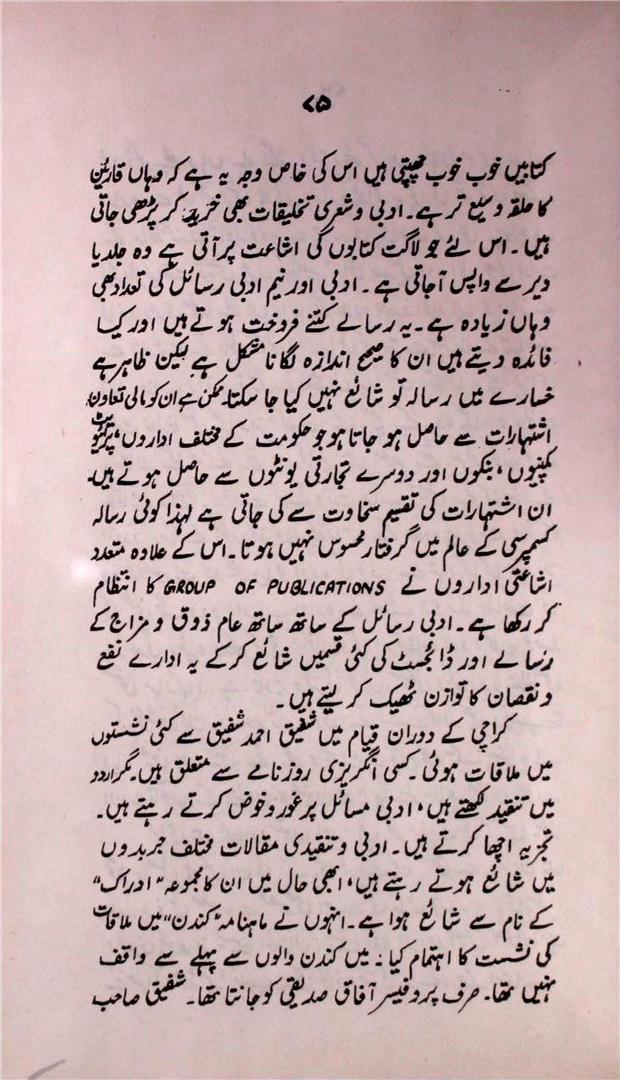 ۷۵
کتابیں خوب خوب چھپتی ہیں اس کی خاص وجہ یہ ہے کہ وہاں قارئین
کا حلقہ وسیع تر ہے۔ ادبی و شعری تخلیقات بھی خرید کر پڑھی جاتی
ہیں۔ اس لئے جو لاگت کتابوں کی اشاعت پر آتی ہے وہ جلد یا
دیر سے واپس آجاتی ہے۔ ادبی اور نیم ادبی رسائل کی تعداد بھی
وہاں زیادہ ہے۔ یہ رسالے کتنے فروخت ہوتے ہیں اور کیا
فائدہ دیتے ہیں ان کا صحیح اندازہ لگانا مشکل ہے لیکن ظاہر ہے
خسارے میں رسالہ تو شائع نہیں کیا جا سکتا۔ ممکن ہے ان کو مالی تعاون،
اشتہارات سے حاصل ہو جاتا ہو جو حکومت کے مختلف اداروں، پرائیویٹ
کمپنیوں، بنکوں اور دوسرے تجارتی یونٹوں سے حاصل ہوتے ہیں۔
ان اشتہارات کی تقسیم سخاوت سے کی جاتی ہے لہٰذا کوئی رسالہ
کسمپرسی کے عالم میں گرفتار محسوس نہیں ہوتا۔ اس کے علاوہ متعدد
اشاعتی اداروں نے GROUP OF PUBLICATIONS کا انتظام
کر رکھا ہے۔ ادبی رسائل کے ساتھ ساتھ عام ذوق و مزاج کے
رسالے اور ڈائجسٹ کی کئی قسمیں شائع کرکے یہ ادارے نفع
و نقصان کا توازن ٹھیک کر لیتے ہیں۔
کراچی کے دوران قیام میں شفیق احمد شفیق سے کئی نشستوں
میں ملاقات ہوئی۔ کسی انگریزی روزنامے سے متعلق ہیں۔ مگر اردو
میں تنقید لکھتے ہیں، ادبی مسائل پر غور و خوض کرتے رہتے ہیں۔
تجزیہ اچھا کرتے ہیں۔ ادبی و تنقیدی مقالات مختلف جریدوں
میں شائع ہوتے رہتے ہیں، ابھی حال میں ان کا مجموعہ "ادراک"
کے نام سے شائع ہوا ہے۔ انہوں نے ماہنامہ "کندن" میں ملاقات
کی نشست کا اہتمام کیا۔ میں کندن والوں سے پہلے سے واقف
نہیں تھا۔ صرف پروفیسر آفاق صدیقی کو جانتا تھا۔ شفیق صاحب